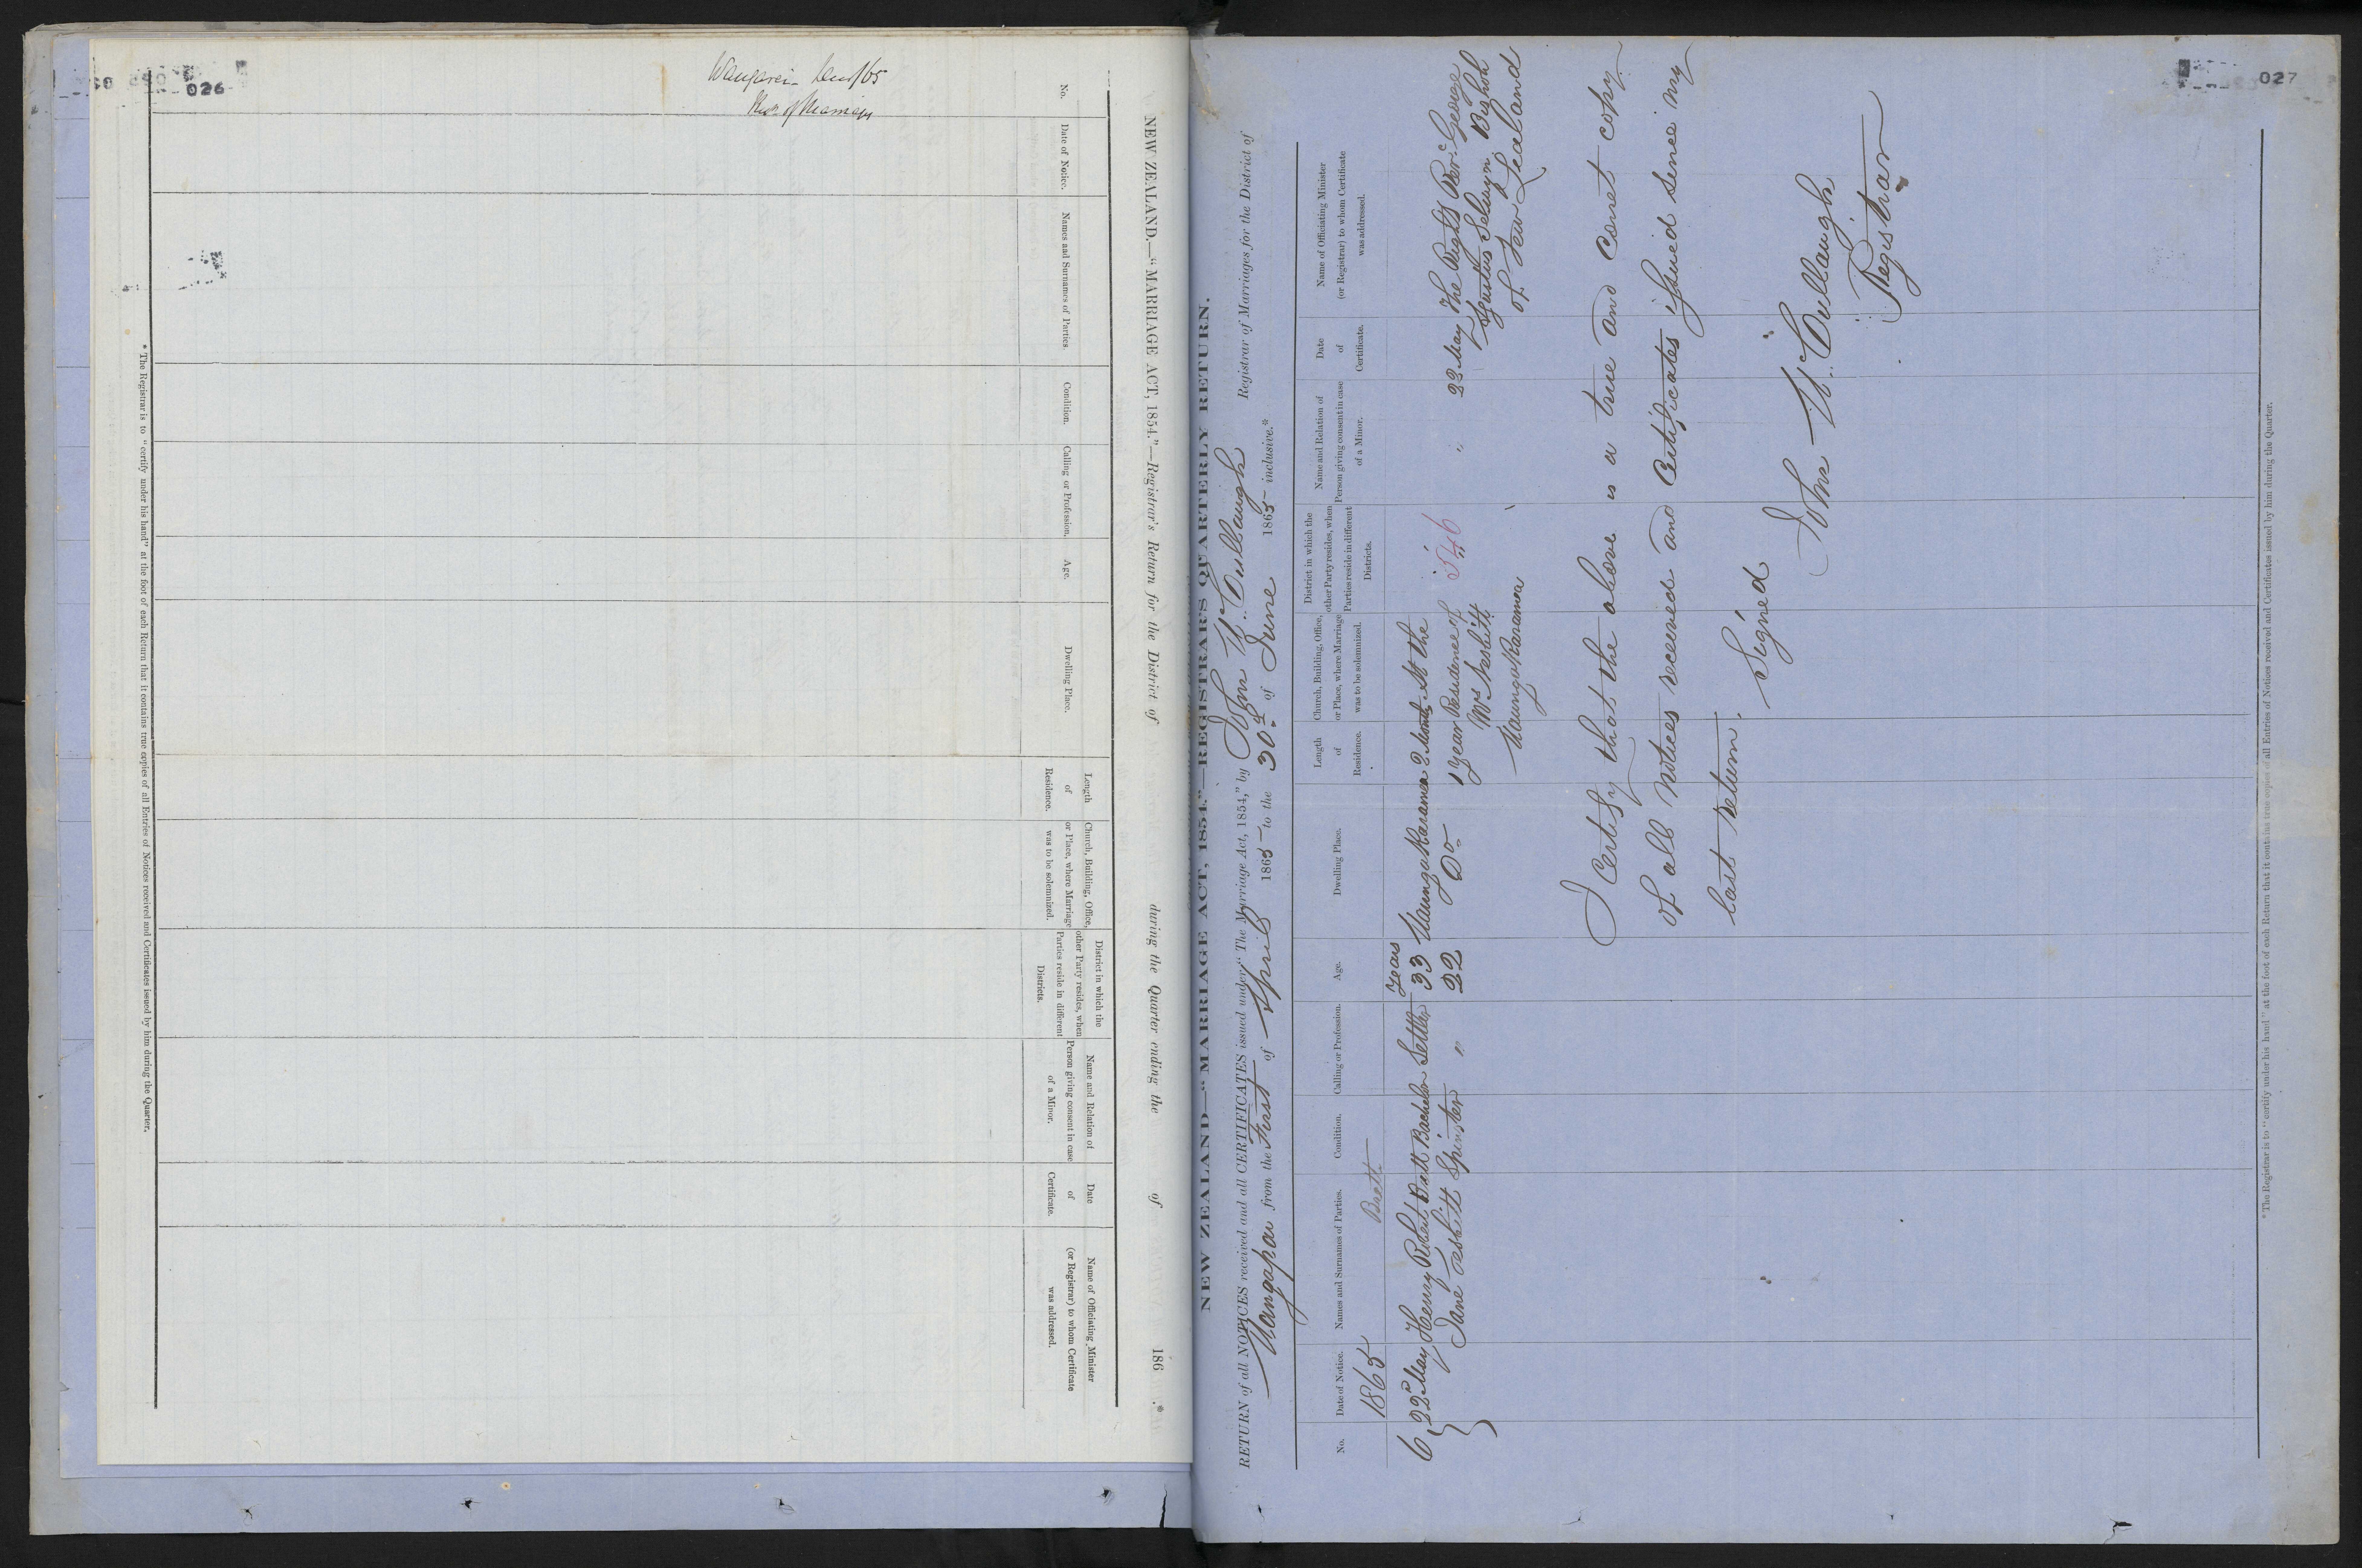 026
Wangarei June/65
No.
Date of Notice.
Names and Surnames of Parties.
Condition.
Calling or Profession.
Age.
Dwelling Place.
Length of Residence.
Church, Building, Office, or Place, where Marriage was to be solemnized.
District in which the other Party resides, when Parties reside in different Districts.
Name and Relation of Person giving consent in case of a Minor.
Date of Certificate.
Name of Officiating Minister (or Registrar) to whom Certificate was addressed.
NEW ZEALAND.—"MARRIAGE ACT, 1854."—Registrar's Return for the District of during the Quarter ending the of 186 .*
* The Registrar is to "certify under his hand" at the foot of each Return that it contains true copies of all Entries of Notices received and Certificates issued by him during the Quarter.
027
NEW ZEALAND—"MARRIAGE ACT, 1854."—REGISTRAR'S QUARTERLY RETURN.
RETURN of all NOTICES received and all CERTIFICATES issued under "The Marriage Act, 1854," by John McCullaugh Registrar of Marriages for the District of
Mangapai from the First of April 1865 to the 30th of June 1865 inclusive.*
No.
Date of Notice.
Names and Surnames of Parties.
Condition.
Calling or Profession.
Age.
Dwelling Place.
Length of Residence.
Church, Building, Office, or Place, where Marriage was to be solemnized.
District in which the other Party resides, when Parties reside in different Districts.
Name and Relation of Person giving consent in case of a Minor.
Date of Certificate.
Name of Officiating Minister (or Registrar) to whom Certificate was addressed.
1865 Brett Years
6 22d May Henry Robert Brett Bachelor Settler 33 Maungakaramea 2 Months At the
Jane Nesbitt Spinster " 22 Do 1 year Residence of 546 " 22 May The Right Revc George
Mr Nesbitt Augustus Selwyn Bishop
Maungakaramea of New Zealand
I Certify that the above is a true and Correct copy
of all Notices received and Certificates issued since my
last return.
Signed
John McCullaugh
Registrar
* The Registrar is to "certify under his hand" at the foot of each Return that it contains true copies of all Entries of Notices received and Certificates issued by him during the Quarter.